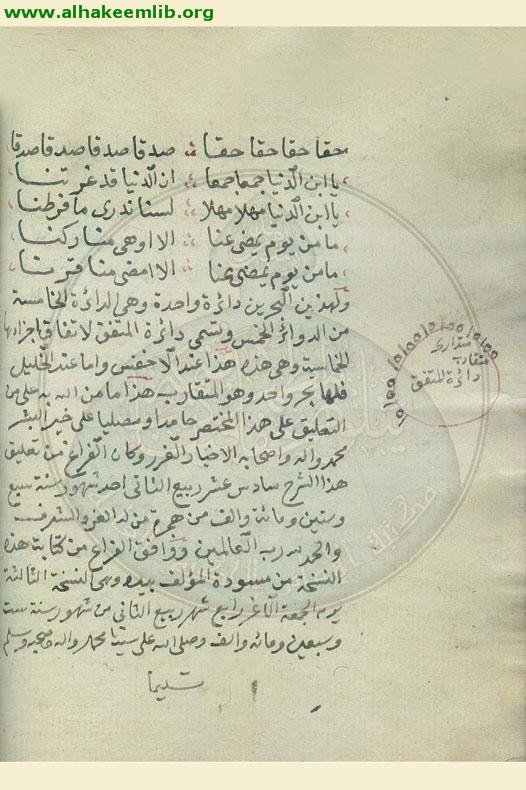 www.alhakeemlib.org
حقا حقا حقا حقا ∴ صدقا صدقا صدقا صدقا
يا ابن الدنيا جمعا جمعا ∴ ان الدنيا قد غرتنا
يا ابن الدنيا مهلا مهلا ∴ لسنا ندرى ما فرطنا
ما من يوم يمضى عنا ∴ الا اوهى منا ركنا
ما من يوم يمضى عنا الا امضى منا قرنا
ولهذين البحرين دائرة واحدة وهى الدائرة الخامسة
من الدوائر الخمس وتسمى دائرة المتفق لاتفاق اجزائها
الخماسية وهى هذه هذا عند الاخفش واما عند الخليل
فلها بحر واحد وهو المتقارب هذا ما من الله به على من
التعليق على هذا المختصر حامدا ومصليا على خير البشر
محمد واله واصحابه الاخيار الغرر وكان الفراغ من تعليق
هذا الشرح سادس عشر ربيع الثانى احد شهور سنة سبع
وستين ومائة والف من هجرة من له العز والشرف
والحمد لله رب العالمين ووافق الفراغ من كتابة هذه
النسخة من مسودة المؤلف بيده وهى النسخة الثالثة
يوم الجمعة رابع شهر ربيع الثانى من شهور سنة ست
وسبعين ومائه والف وصلى الله على سيدنا محمد واله وصحبه وسلم
تسليما
متقارب
دائرة المتفق